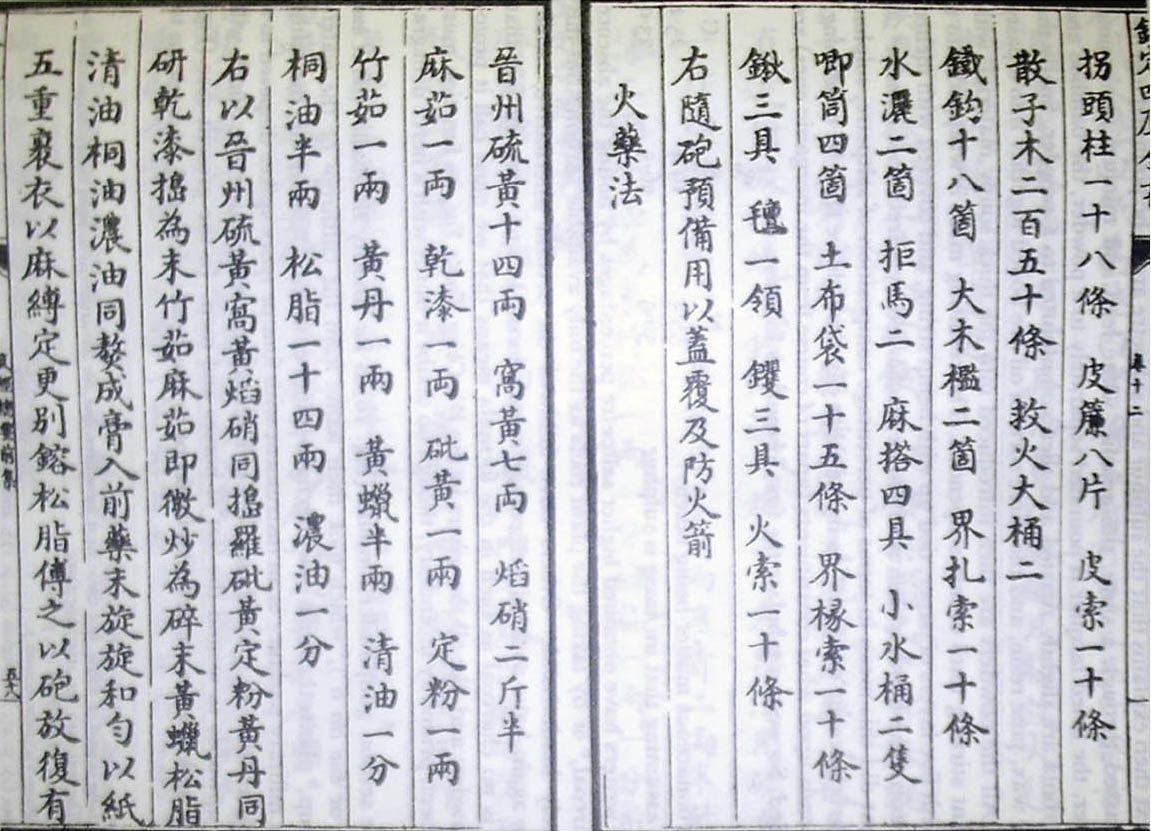 欽定四庫全書
卷十二
拐頭柱一十八條 皮簾八片 皮索一十條
散子木二百五十條 救火大桶二
鐵鈎十八箇 大木檻二箇 界扎索一十條
水濃二箇 拒馬二 麻搭四具 小水桶二隻
唧筒四箇 土布袋一十五條 界椽索一十條
鍬三具 氊一領 钁三具 火索一十條
右隨砲預備用以蓋覆及防火箭
火藥法
晉州硫黃十四兩 窩黃七兩 焰硝二斤半
麻茹一兩 乾漆一兩 砒黃一兩 定粉一兩
竹茹一兩 黃丹一兩 黃蠟半兩 清油一分
桐油半兩 松脂一十四兩 濃油一分
右以晉州硫黃窩黃焰硝同搗羅砒黃定粉黃丹同
研乾漆搗為末竹茹麻茹即微炒為碎末黃蠟松脂
清油桐油濃油同熬成膏入前藥末旋旋和勻以紙
五重裹衣以麻縛定更別鎔松脂傅之以砲放復有